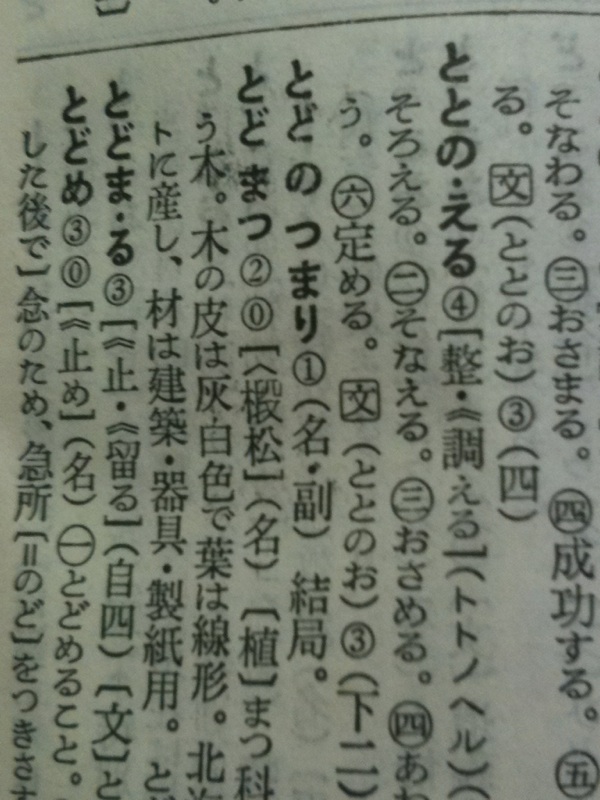 そなわる。㊂おさまる。㊃成功する。㊄
る。文(ととのお)③(四)
ととの・える④[整・《調える](トトノヘル)(
そろえる。㊁そなえる。㊂おさめる。㊃あわ
う。㊅定める。文(ととのお)③(下二)
とどのつまり①(名・副) 結局。
とどまつ②⓪[〈椴松](名)〔植〕まつ科
う木。木の皮は灰白色で葉は線形。北海
トに産し、材は建築・器具・製紙用。 とど
とどま・る③[《止・《留る](自四)〔文〕と
とどめ③⓪[《止め](名)㊀とどめること。
した後で]念のため、急所[=のど]をつきさす